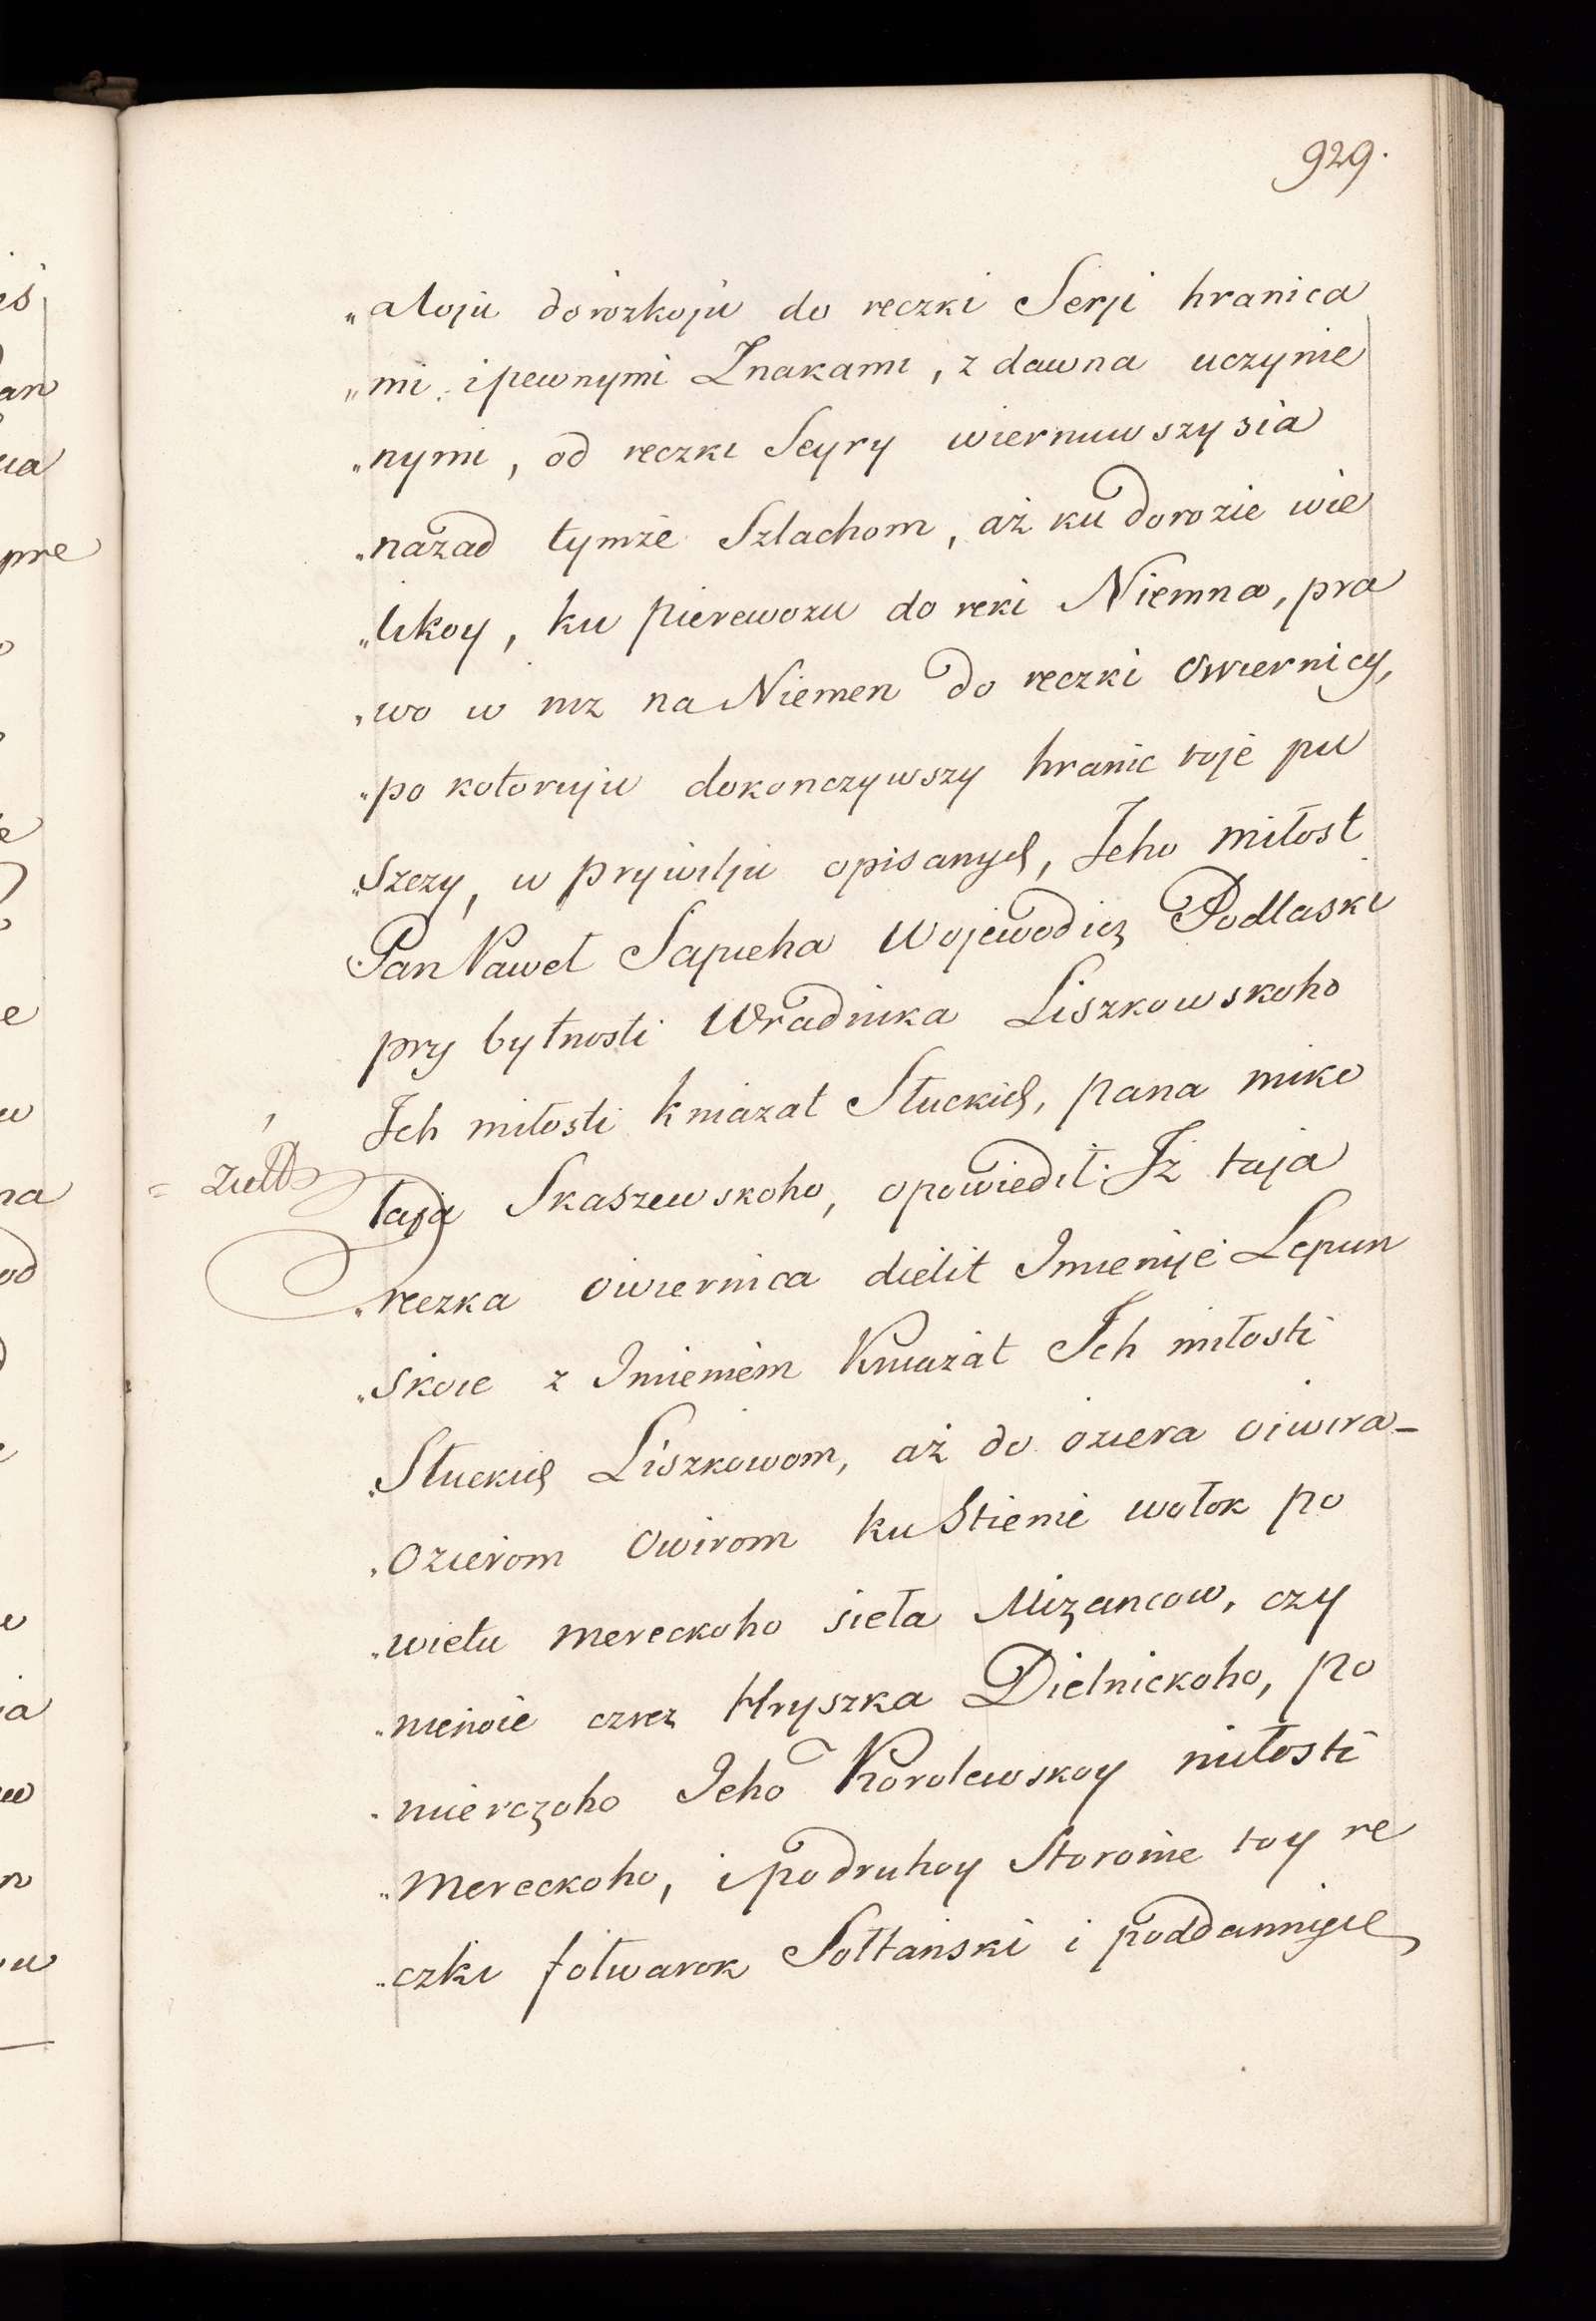 929.
„atoju dorożkoju do reczki Serji hranica
„mi, i pewnymi Znakami, z dawna uczynie
„nymi, od reczki Seyry wiernuwszy sia
„nazad tymże Szlachom, aż ku dorozie wie
„likoy, ku pierewozu do reki Niemna, pra
„wo w niz na Niemen do reczki Owiernicy,
„po kotoruju dokonczywszy hranic toje pu
„szczy, w prywilju opisanych, Jeho miłost
Pan Paweł Sapieha Wojewodicz Podlaski
pry bytnosti Wradnika Liszkowskoho
Ich miłosti kniazat Słuckich, pana miko
łaja Skaszewskoho, opowiedił: Iż taja
„reczka Owiernica dielit Imienije Lepun
„skoie z Imieniem Kniażat Ich miłosti
„Słuckich Liszkowom, aż do oziera oiwira-
„Ozierom Owirom ku Stienie wołok po
„wietu mereckoho sieła Mizancow, czy
„nienoie czrez Hryszka Dielnickoho, po
„mierczoho Jeho Korolewskoy miłosti
„Mereckoho, i po druhoy Storonie toy re
„czki fołwarok Sołtanski i poddannyie